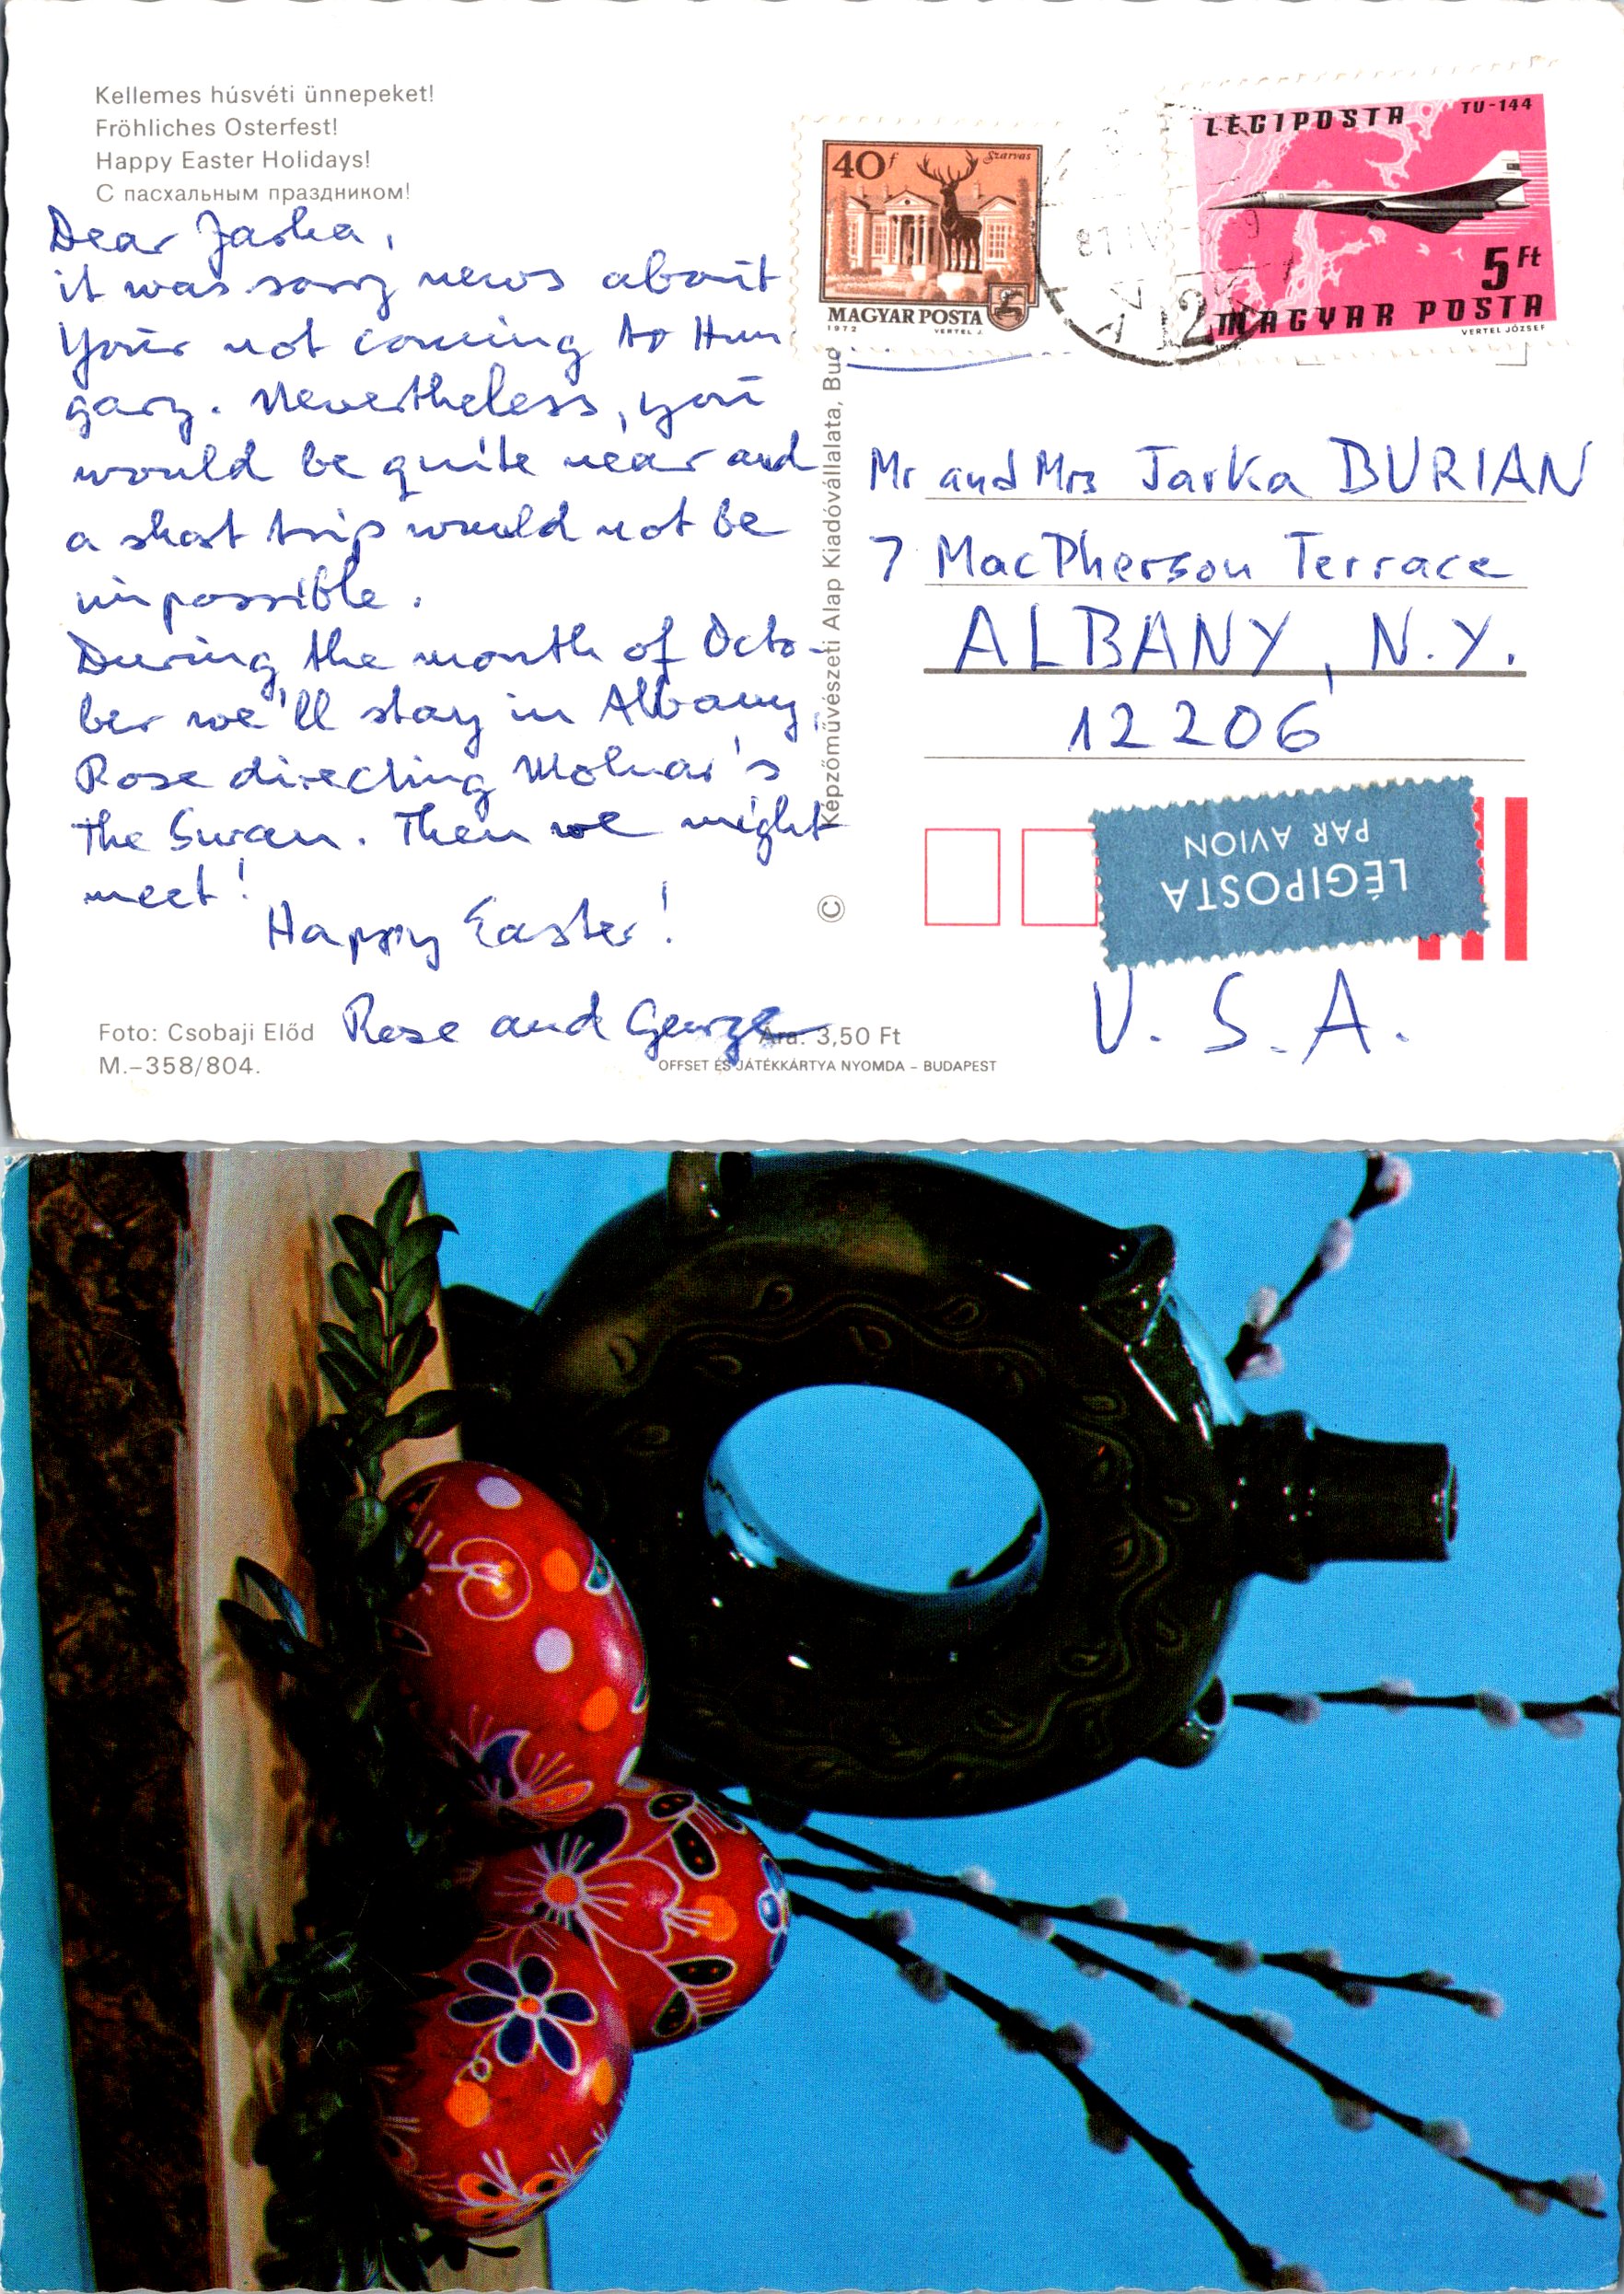 Kellemes húsvéti ünnepeket!
Fröhliches Osterfest!
Happy Easter Holidays!
С пасхальным праздником!
Dear Jarka,
it was sorry news about
Your not coming to Hun
gary. Nevertheless, you
would be quite near and
a short trip would not be
impossible.
During the month of Octo-
ber we'll stay in Albany,
Rose directing Molnar's
The Swan. Then we might
meet!
Happy Easter!
Rose and George
Foto: Csobaji Előd
M.–358/804.
Ára: 3,50 Ft
OFFSET ÉS JÁTÉKKÁRTYA NYOMDA – BUDAPEST
© Képzőművészeti Alap Kiadóvállalata, Bud
40f
Szarvas
MAGYAR POSTA
1972
VERTEL J.
81 IV
12
LÉGIPOSTA
TU-144
5 Ft
MAGYAR POSTA
VERTEL JÓZSEF
Mr and Mrs Jarka BURIAN
7 MacPherson Terrace
ALBANY, N.Y.
12206
LÉGIPOSTA
PAR AVION
U.S.A.